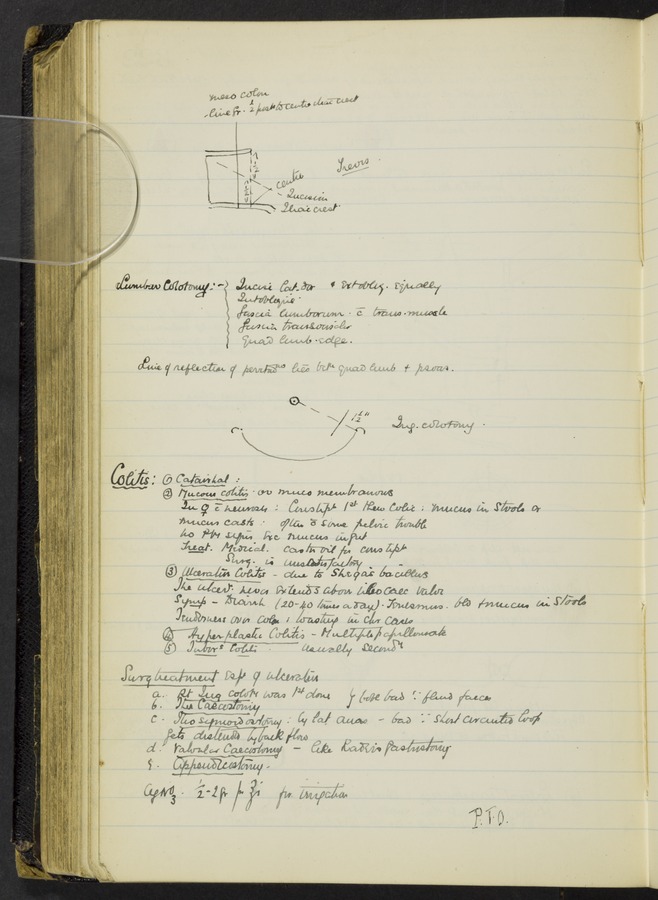 meso colon
line fr. ½ post to centre iliac crest
Treves
centre
Incision
Iliac crest
Lumbar Colotomy:- Incise Lat. Dor & Ext obliq. equally
Int oblique
fascia lumborum c̄ trans. muscle
fascia transversalis
quad lumb. edge.
Line of reflection of lies betn quad lumb + psoas.
1½"
Ing. colotomy.
Colitis: ① Catarrhal:
② Mucous colitis or muco membranous
In ♀ c̄ neurosis: Constipt 1st then Colic: mucus in Stools or
mucus casts: often c̄ some pelvic trouble
no signs mucus
Treat. Medical. castor oil for constipt
Surg. is unsatisfactory
③ Ulcerative Colitis - due to Shiga's bacillus
The ulcer. never extends above ileo caec valve
Symp - Diarrh (20-40 times a day). Tenesmus. bld + mucus in Stools
Tenderness over colon & wasting in chr cases
④ Hyperplastic Colitis - Multiple papillomata
⑤ Tuberc Colitis usually Second
Surg treatment Esp of ulcerative
a. Rt Ing colot was 1st done bad ∵ fluid faeces
b. The Caecostomy
c. Ileo sigmoidostomy: by lat anas - bad ∵ Short circuited loop
gets distended by back flow
d. Valvular Caecostomy - like Kader's gastrostomy
e. Appendicostomy.
AgNO3 ½-2 gr p ℥i for irrigation
P.T.O.